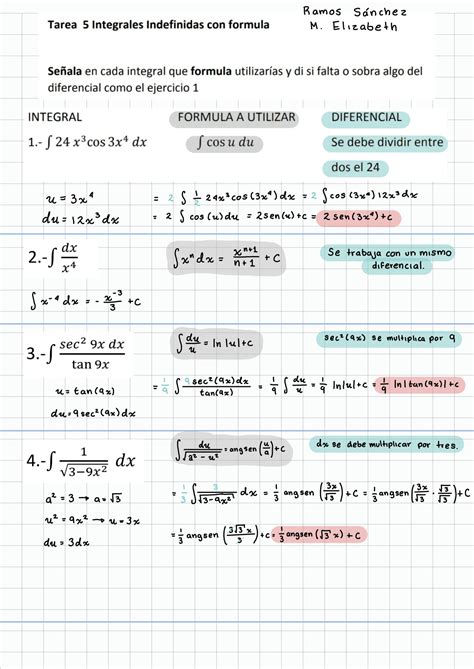 Ramos Sánchez
Tarea 5 Integrales Indefinidas con formula M. Elizabeth
Señala en cada integral que formula utilizarías y di si falta o sobra algo del
diferencial como el ejercicio 1
INTEGRAL FORMULA A UTILIZAR DIFERENCIAL
1.- ∫ 24 x³cos 3x⁴ dx ∫ cos u du Se debe dividir entre
dos el 24
u = 3x⁴ = 2 ∫ 1/2 24x³cos(3x⁴)dx = 2 ∫ cos(3x⁴)12x³dx
du = 12x³dx = 2 ∫ cos(u)du = 2sen(u)+c = 2sen(3x⁴)+c
2.-∫ dx/x⁴ ∫xⁿdx = xⁿ⁺¹/n+1 + C Se trabaja con un mismo
diferencial.
∫x⁻⁴dx = - x⁻³/3 +C
3.-∫ sec² 9x dx/tan 9x ∫ du/u = ln|u|+c sec²(9x) se multiplica por 9
u = tan(9x) = 1/9 ∫ 9sec²(9x)dx/tan(9x) = 1/9 ∫ du/u = 1/9 ln|u|+c = 1/9 ln|tan(9x)|+c
du=9sec²(9x)dx
4.-∫ 1/√3−9x² dx ∫ du/√a²-u² = angsen(u/a)+C dx se debe multiplicar por tres.
a² = 3 → a = √3 = 1/3 ∫ 3/√3-9x² dx = 1/3 angsen(3x/√3)+C = 1/3 angsen(3x/√3 · √3/√3)+C
u² = 9x² → u = 3x
= 1/3 angsen(3√3x/3)+C = 1/3 angsen(√3x)+C
du = 3dx